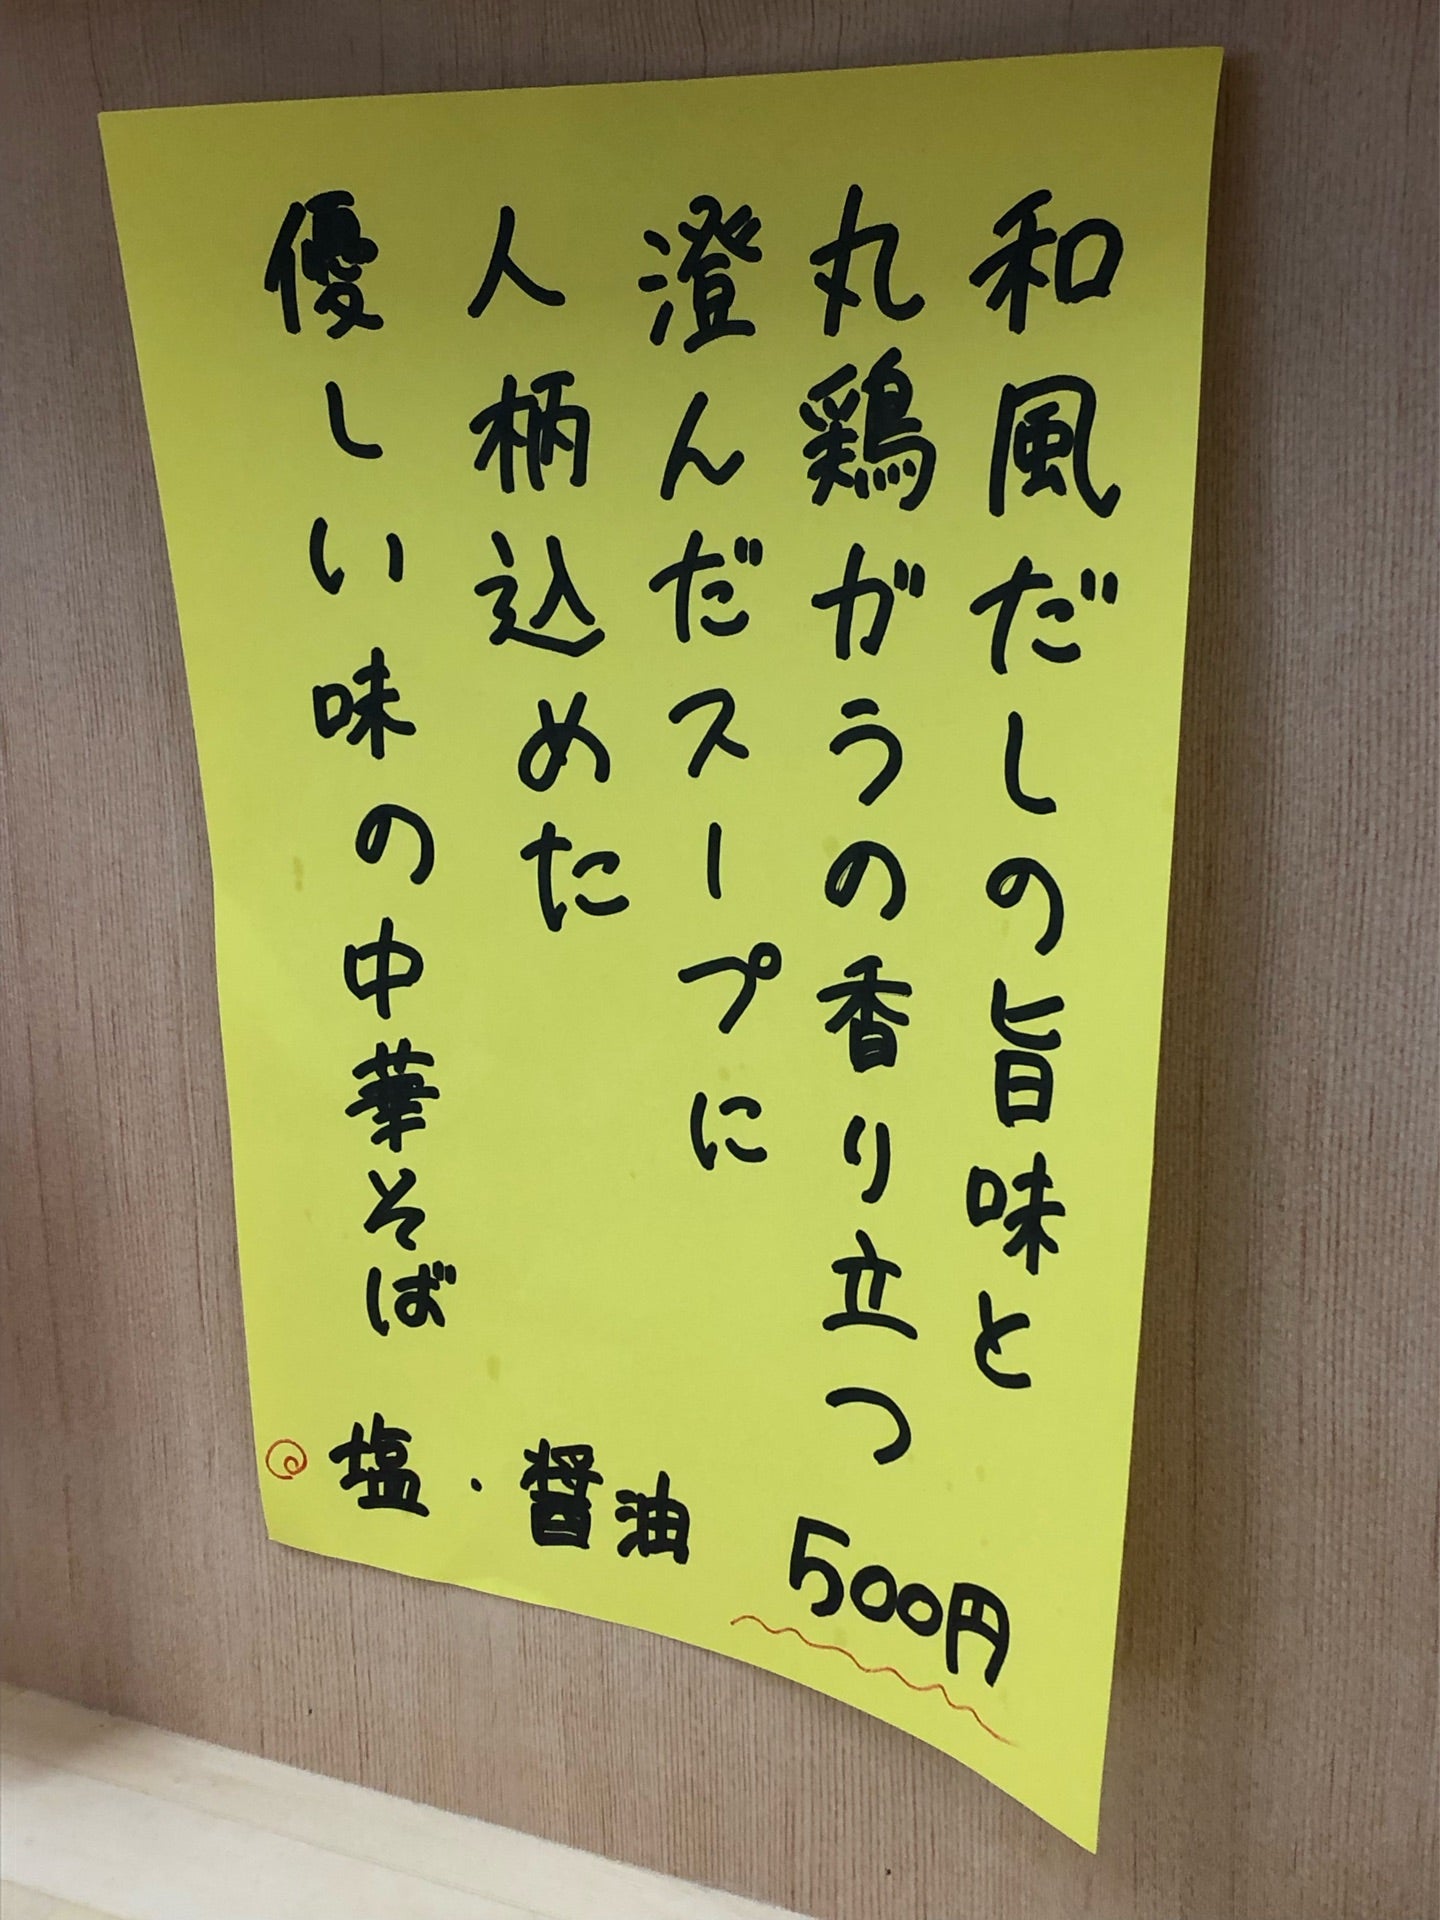 和風だしの旨味と
丸鶏ガうの香り立つ
澄んだスープに
人柄込めた
優しい味の中華そば
塩・醤油 500円